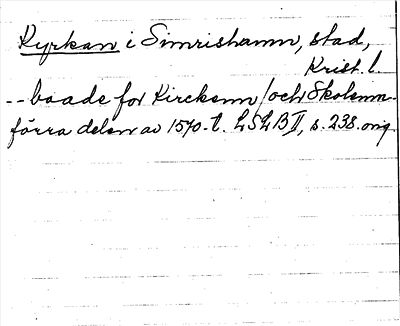 Kyrkan i Simrishamn, stad,
Krist. l.
-- baade for Kirckenn /och Skolenn-
förra delen av 1570-t. LSLB II, s. 238. orig.